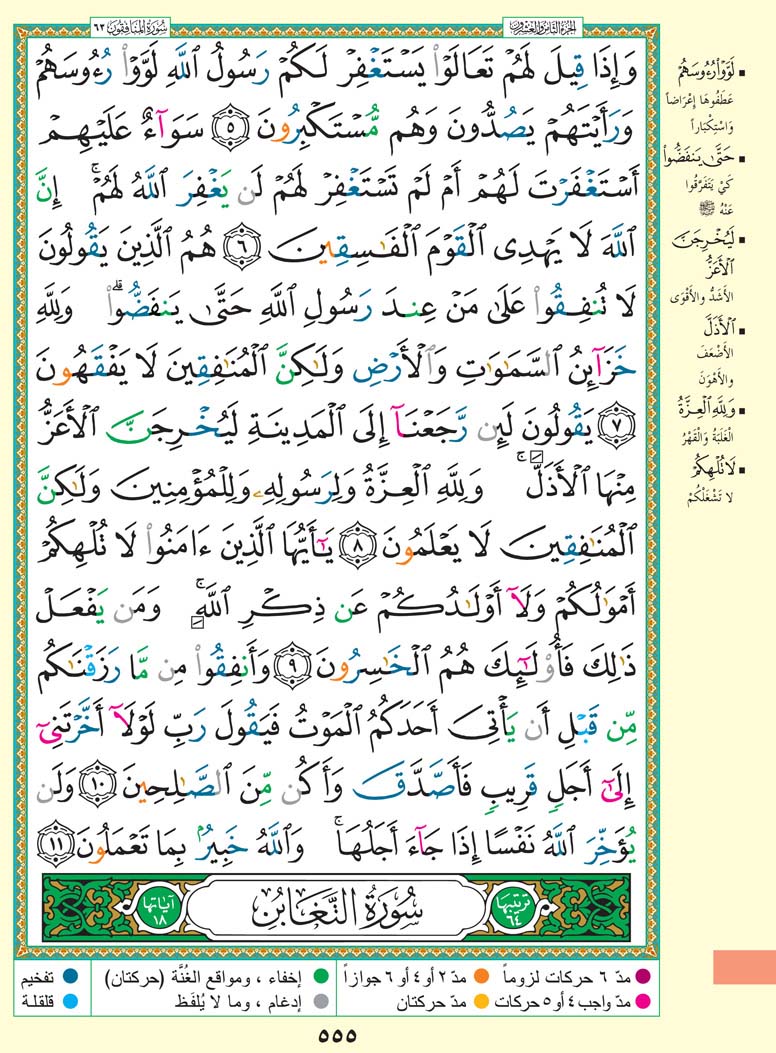 سُورَةُ المُنَافِقُون ٦٣
الجزء الثامن والعشرون
وَإِذَا قِيلَ لَهُمْ تَعَالَوْا۟ يَسْتَغْفِرْ لَكُمْ رَسُولُ ٱللَّهِ لَوَّوْا۟ رُءُوسَهُمْ
وَرَأَيْتَهُمْ يَصُدُّونَ وَهُم مُّسْتَكْبِرُونَ ٥ سَوَآءٌ عَلَيْهِمْ
أَسْتَغْفَرْتَ لَهُمْ أَمْ لَمْ تَسْتَغْفِرْ لَهُمْ لَن يَغْفِرَ ٱللَّهُ لَهُمْ ۚ إِنَّ
ٱللَّهَ لَا يَهْدِى ٱلْقَوْمَ ٱلْفَـٰسِقِينَ ٦ هُمُ ٱلَّذِينَ يَقُولُونَ
لَا تُنفِقُوا۟ عَلَىٰ مَنْ عِندَ رَسُولِ ٱللَّهِ حَتَّىٰ يَنفَضُّوا۟ ۗ وَلِلَّهِ
خَزَآئِنُ ٱلسَّمَـٰوَٰتِ وَٱلْأَرْضِ وَلَـٰكِنَّ ٱلْمُنَـٰفِقِينَ لَا يَفْقَهُونَ
٧ يَقُولُونَ لَئِن رَّجَعْنَآ إِلَى ٱلْمَدِينَةِ لَيُخْرِجَنَّ ٱلْأَعَزُّ
مِنْهَا ٱلْأَذَلَّ ۚ وَلِلَّهِ ٱلْعِزَّةُ وَلِرَسُولِهِۦ وَلِلْمُؤْمِنِينَ وَلَـٰكِنَّ
ٱلْمُنَـٰفِقِينَ لَا يَعْلَمُونَ ٨ يَـٰٓأَيُّهَا ٱلَّذِينَ ءَامَنُوا۟ لَا تُلْهِكُمْ
أَمْوَٰلُكُمْ وَلَآ أَوْلَـٰدُكُمْ عَن ذِكْرِ ٱللَّهِ ۚ وَمَن يَفْعَلْ
ذَٰلِكَ فَأُو۟لَـٰٓئِكَ هُمُ ٱلْخَـٰسِرُونَ ٩ وَأَنفِقُوا۟ مِن مَّا رَزَقْنَـٰكُم
مِّن قَبْلِ أَن يَأْتِىَ أَحَدَكُمُ ٱلْمَوْتُ فَيَقُولَ رَبِّ لَوْلَآ أَخَّرْتَنِىٓ
إِلَىٰٓ أَجَلٍ قَرِيبٍ فَأَصَّدَّقَ وَأَكُن مِّنَ ٱلصَّـٰلِحِينَ ١٠ وَلَن
يُؤَخِّرَ ٱللَّهُ نَفْسًا إِذَا جَآءَ أَجَلُهَا ۚ وَٱللَّهُ خَبِيرٌۢ بِمَا تَعْمَلُونَ ١١
ترتيبها ٦٤ سُورَةُ التَّغَابُنِ آياتها ١٨
▪ لَوَّوْا۟ رُءُوسَهُمْ
عَطَفُوهَا إِعْرَاضاً
وَاسْتِكْبَاراً
▪ حَتَّىٰ يَنفَضُّوا۟
كَيْ يَتَفَرَّقُوا
عَنْهُ ﷺ
▪ لَيُخْرِجَنَّ
ٱلْأَعَزُّ
الأَشَدُّ والأَقْوَى
▪ ٱلْأَذَلَّ
الأَضْعَفَ
والأَهْوَنَ
▪ وَلِلَّهِ ٱلْعِزَّةُ
الْغَلَبَةُ وَالْقَهْرُ
▪ لَا تُلْهِكُمْ
لا تَشْغَلْكُمْ
مدّ ٦ حركات لزوماً
مدّ ٢ أو ٤ أو ٦ جوازاً
إخفاء ، ومواقع الغُنَّة (حركتان)
تفخيم
مدّ واجب ٤ أو ٥ حركات
مدّ حركتان
إدغام ، وما لا يُلفَظ
قلقلة
٥٥٥